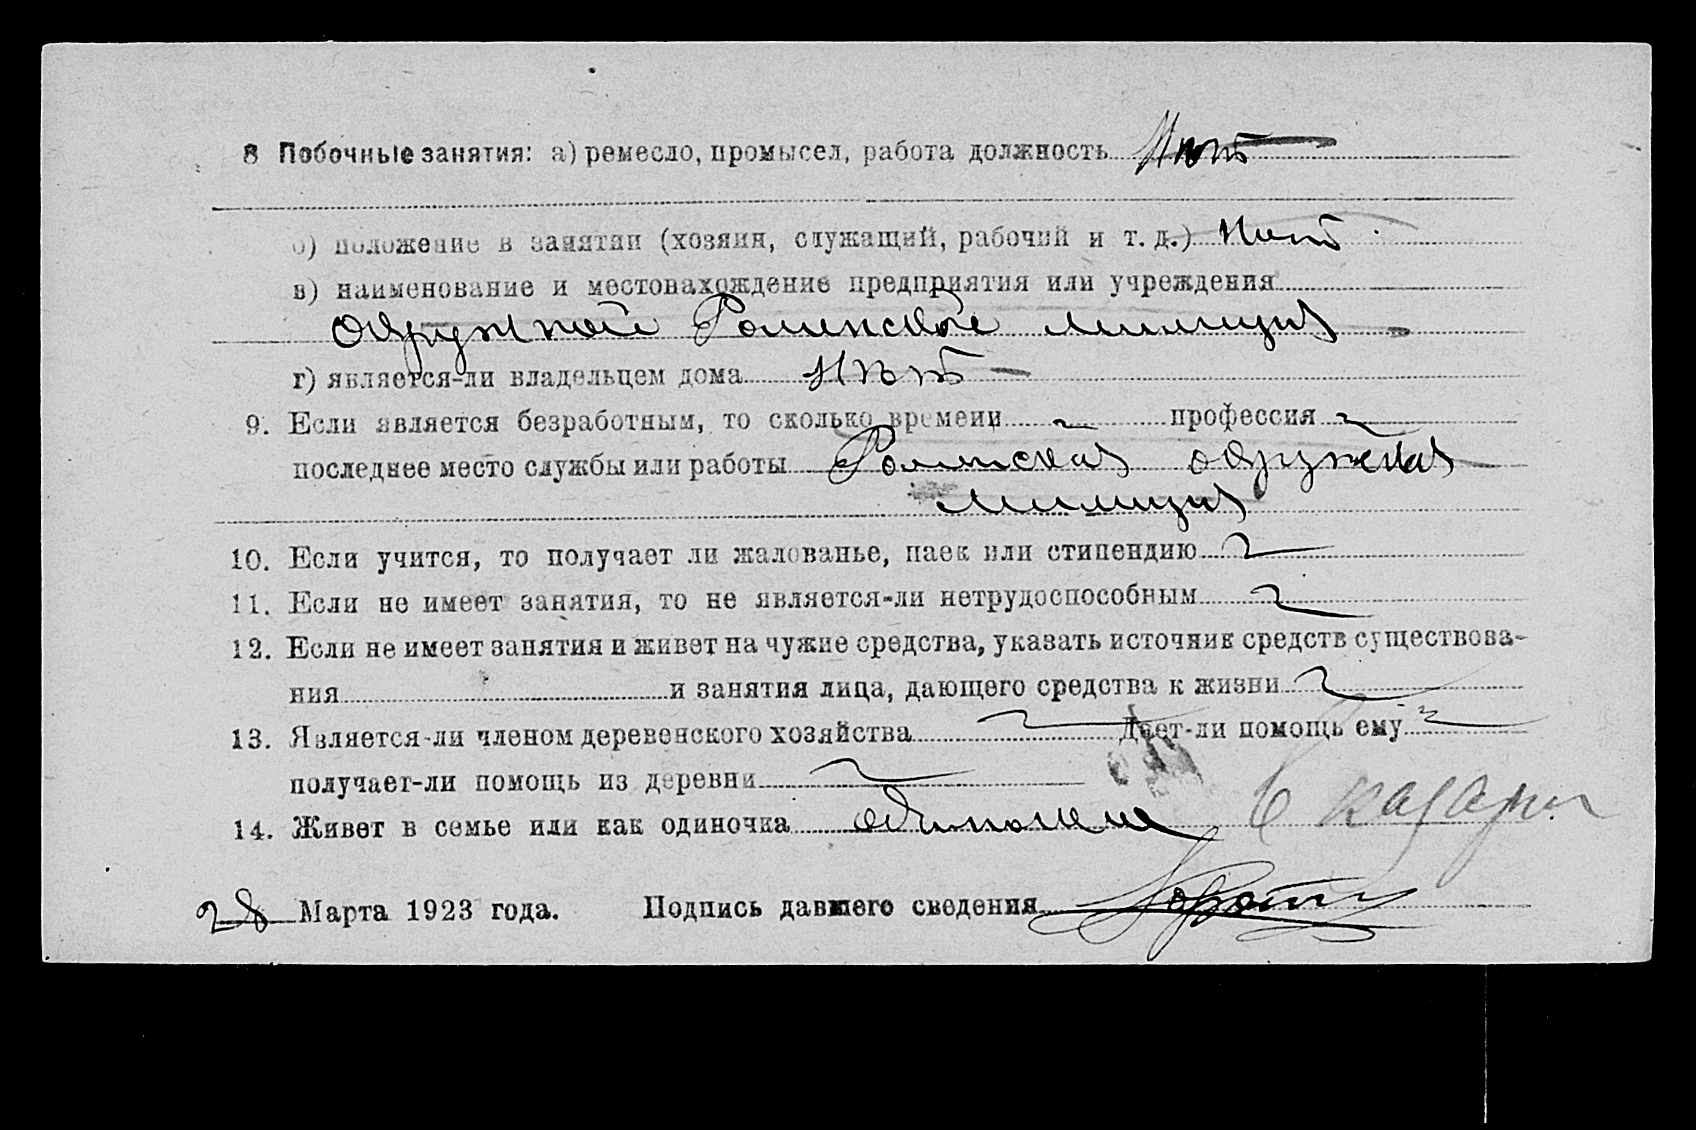 8 Побочные занятия: а) ремесло, промысел, работа должность Нѣтъ
б) положение в занятии (хозяин, служащий, рабочий и т. д.) Нетъ
в) наименование и местонахождение предприятия или учреждения
Окружной Роменской милиции
г) является-ли владельцем дома Нѣтъ
9. Если является безработным, то сколько времени профессия
последнее место службы или работы Роменская окружная
милиция
10. Если учится, то получает ли жалованье, паек или стипендию
11. Если не имеет занятия, то не является-ли нетрудоспособным
12. Если не имеет занятия и живет на чужие средства, указать источник средств существова-
ния и занятия лица, дающего средства к жизни
13. Является-ли членом деревенского хозяйства Дает-ли помощь ему
получает-ли помощь из деревни
14. Живет в семье или как одиночка
28 Марта 1923 года. Подпись давшего сведения